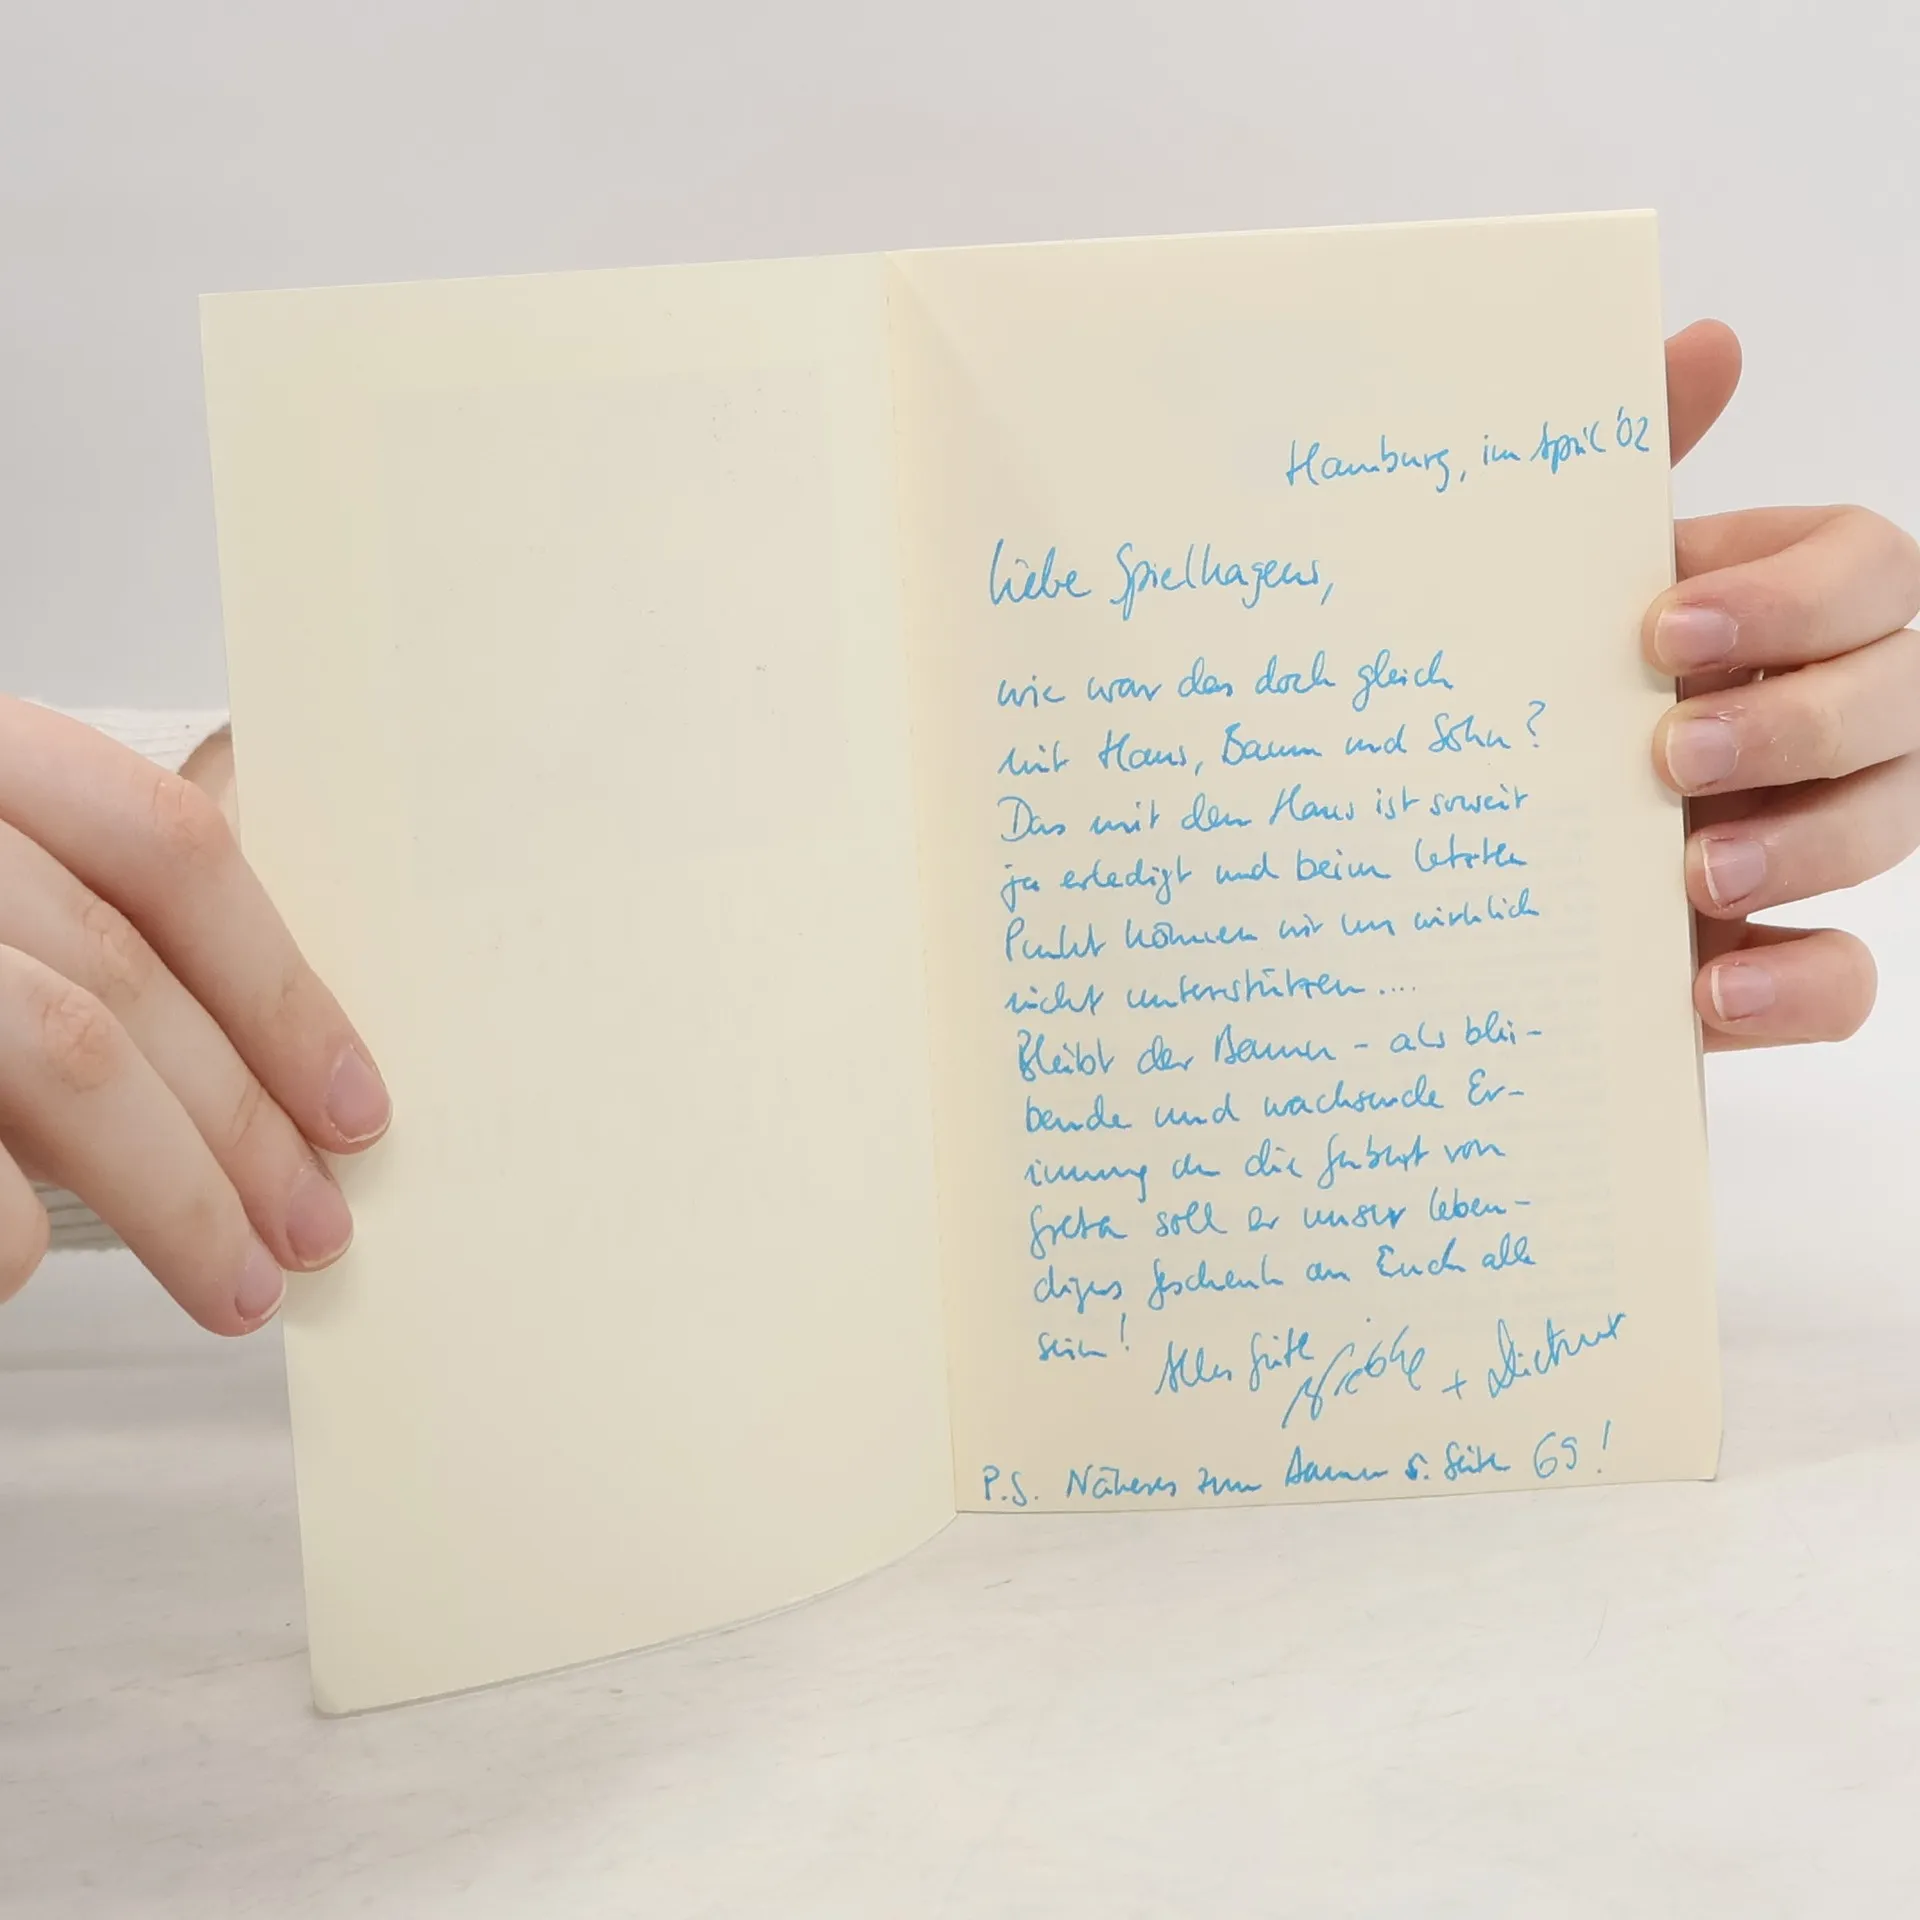 Hamburg, im April '02
Liebe Spielhagens,
wie war das doch gleich
mit Haus, Baum und Sohn?
Das mit dem Haus ist soweit
ja erledigt und beim letzten
Punkt können wir Euch wirklich
nicht unterstützen....
Bleibt der Baum - als blei-
bende und wachsende Er-
innerung an die Geburt von
Greta soll er unser leben-
diges Geschenk an Euch alle
sein!
Alles Gute + Dietmar
P.S. Näheres zum Baum s. Seite 69!